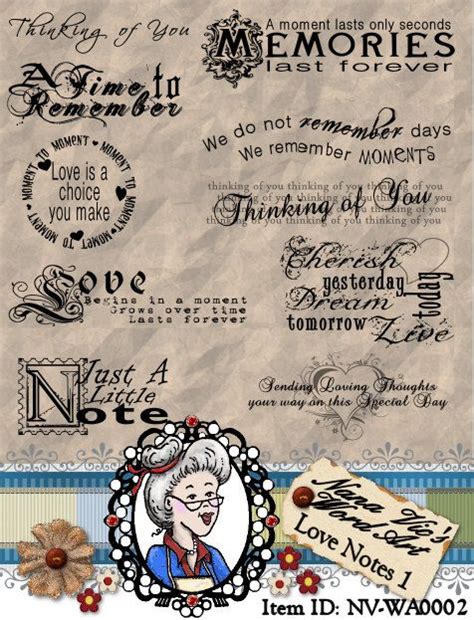 Thinking of You
A moment lasts only seconds
MEMORIES
last forever
A Time to
Remember
We do not remember days
We remember MOMENTS
MOMENT TO MOMENT TO MOMENT TO MOMET TO
Love is a
choice
you make
thinking of you thinking of you thinking of you
thinking of you thinking of you thinking of you
Thinking of You
thinking of you thinking of you thinking of you
thinking of you thinking of you thinking of you
Love
Begins in a moment
Grows over time
Lasts forever
Cherish
yesterday
Dream
tomorrow
Live
today
Just A
Little
Note
Sending Loving Thoughts
your way on this Special Day
Nana Vic's
Word Art
Love Notes 1
Item ID: NV-WA0002